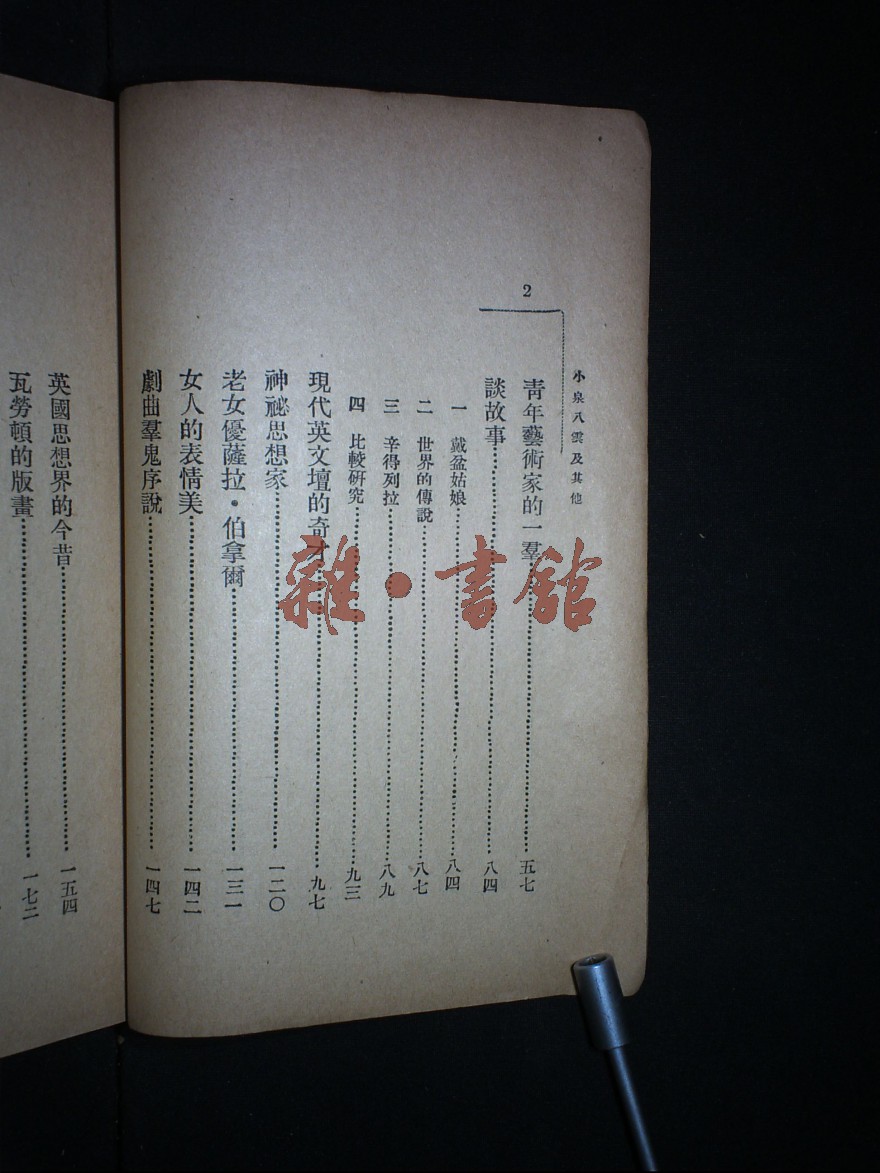 2
小泉八雲及其他
青年藝術家的一羣……五七
談故事……八四
一 戴盆姑娘……八四
二 世界的傳說……八七
三 辛得列拉……八九
四 比較研究……九三
現代英文壇的奇才……九七
神祕思想家……一二〇
老女優薩拉・伯拿爾……一三一
女人的表情美……一四二
劇曲羣鬼序說……一四七
英國思想界的今昔……一五四
瓦勞頓的版畫……一七二
雜・書館